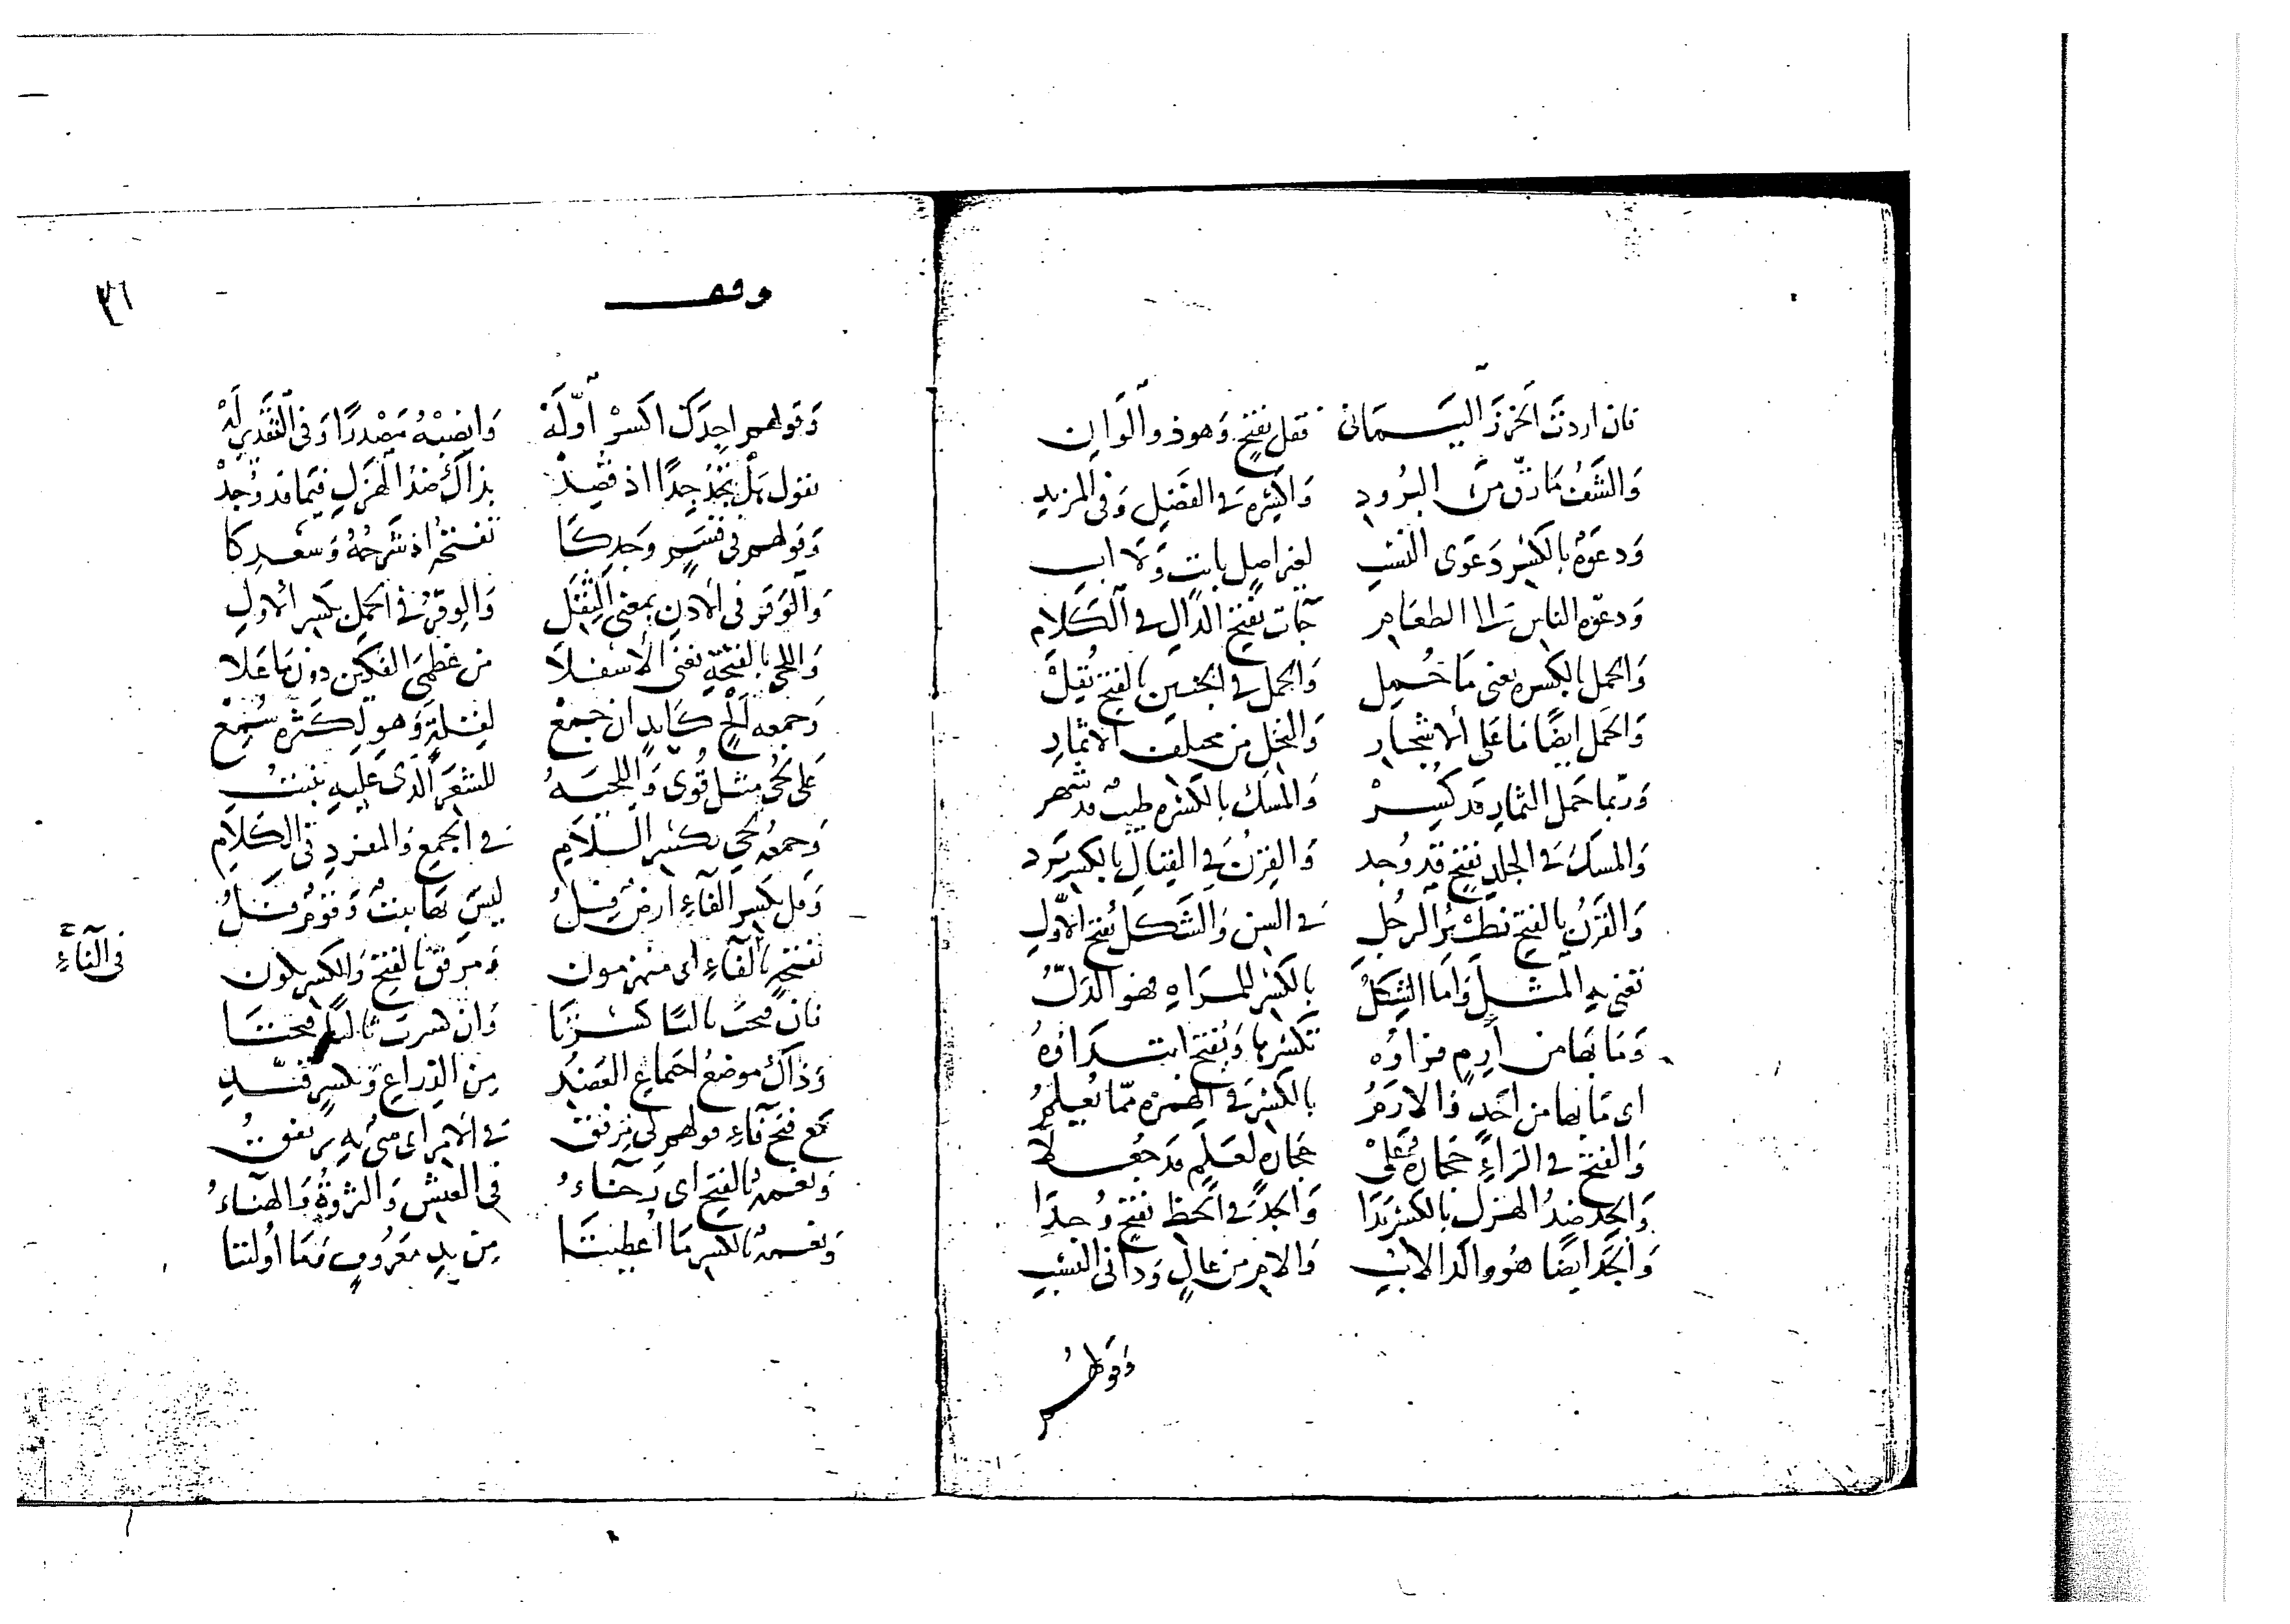 فان اردت الخرز اليماني فقل بفتح وهو ذو ألوان
والشف ما رق من البرود والكسر في الفضل وفي المزيد
ودعوة بالكسر دعوى النسب لغير اصل ثابت ولا اب
ودعوة الناس الى الطعام جات بفتح الدال في الكلام
والحمل بالكسرة يعني ما حمل والحمل في الجنين بالفتح نقل
والحمل ايضا ما على الاشجار والنخل من مختلف الاثمار
وربما حمل الثمار قد كسر والمسك بالكسرة طيب قد شهر
والمسك في الجلد بفتح قد وجد والقرن في القتال بالكسر يرد
والقرن بالفتح نظير الرجل في السن والشكل بفتح الاول
تعني به المثل واما الشكل بالكسر للمراة فهو الدل
وما بها من ارم فراؤه تكسرها ويفتح ابتداؤه
اي ما بها من احد والارم بالكسر في الهمزة مما يعلم
والفتح في الراء حجارة على حجارة لعلم قد جعلا
والجد ضد الهزل بالكسر بدا والجد في الحظ بفتح وجدا
والجد ايضا هو والد الاب والامر من عال ودانى النسب
وقولهم
وقف
٣٦
وقولهم اجدك اكسر أوله وانصبه مصدرا وفى التقدير له
تقول هل تجد جدا اذ قصد بذاك ضد الهزل فيما قد وجد
وقولهم في قسم وجدكا تفتحه اذ شرحه وسعدكا
والوقر فى الاذن بمعنى الثقل والوقر في الحمل بكسر الاول
واللحى بالفتحة تعني الأسفلا من عظمي الفكين دون ما علا
وجمعه الح كايد ان جمع لقلة وهو لكثرة سمع
على لحى مثل قوى واللحيه للشعر الذى عليه
وجمعه لحى بكسر اللام في الجمع والمفرد في الكلام
وقل بكسر الفاء ارض فل ليس بها نبت وقوم فل
بفتح الفاء اى منهزمون ومرفق بالفتح والكسر يكون
في التاء
فان فتحت بالفا كسرتا وان كسرت فتحتا
وذاك موضع اجتماع العضد من الذراع وبكسر قيد
مع فتح فاء قولهم لى مرفق في الامر اى شيء به يرتفق
ونعمة بالفتح اى رخاء فى العيش والثروة والهناء
ونعمة بالكسر ما أعطيتا من يد معروف وما أوليتا